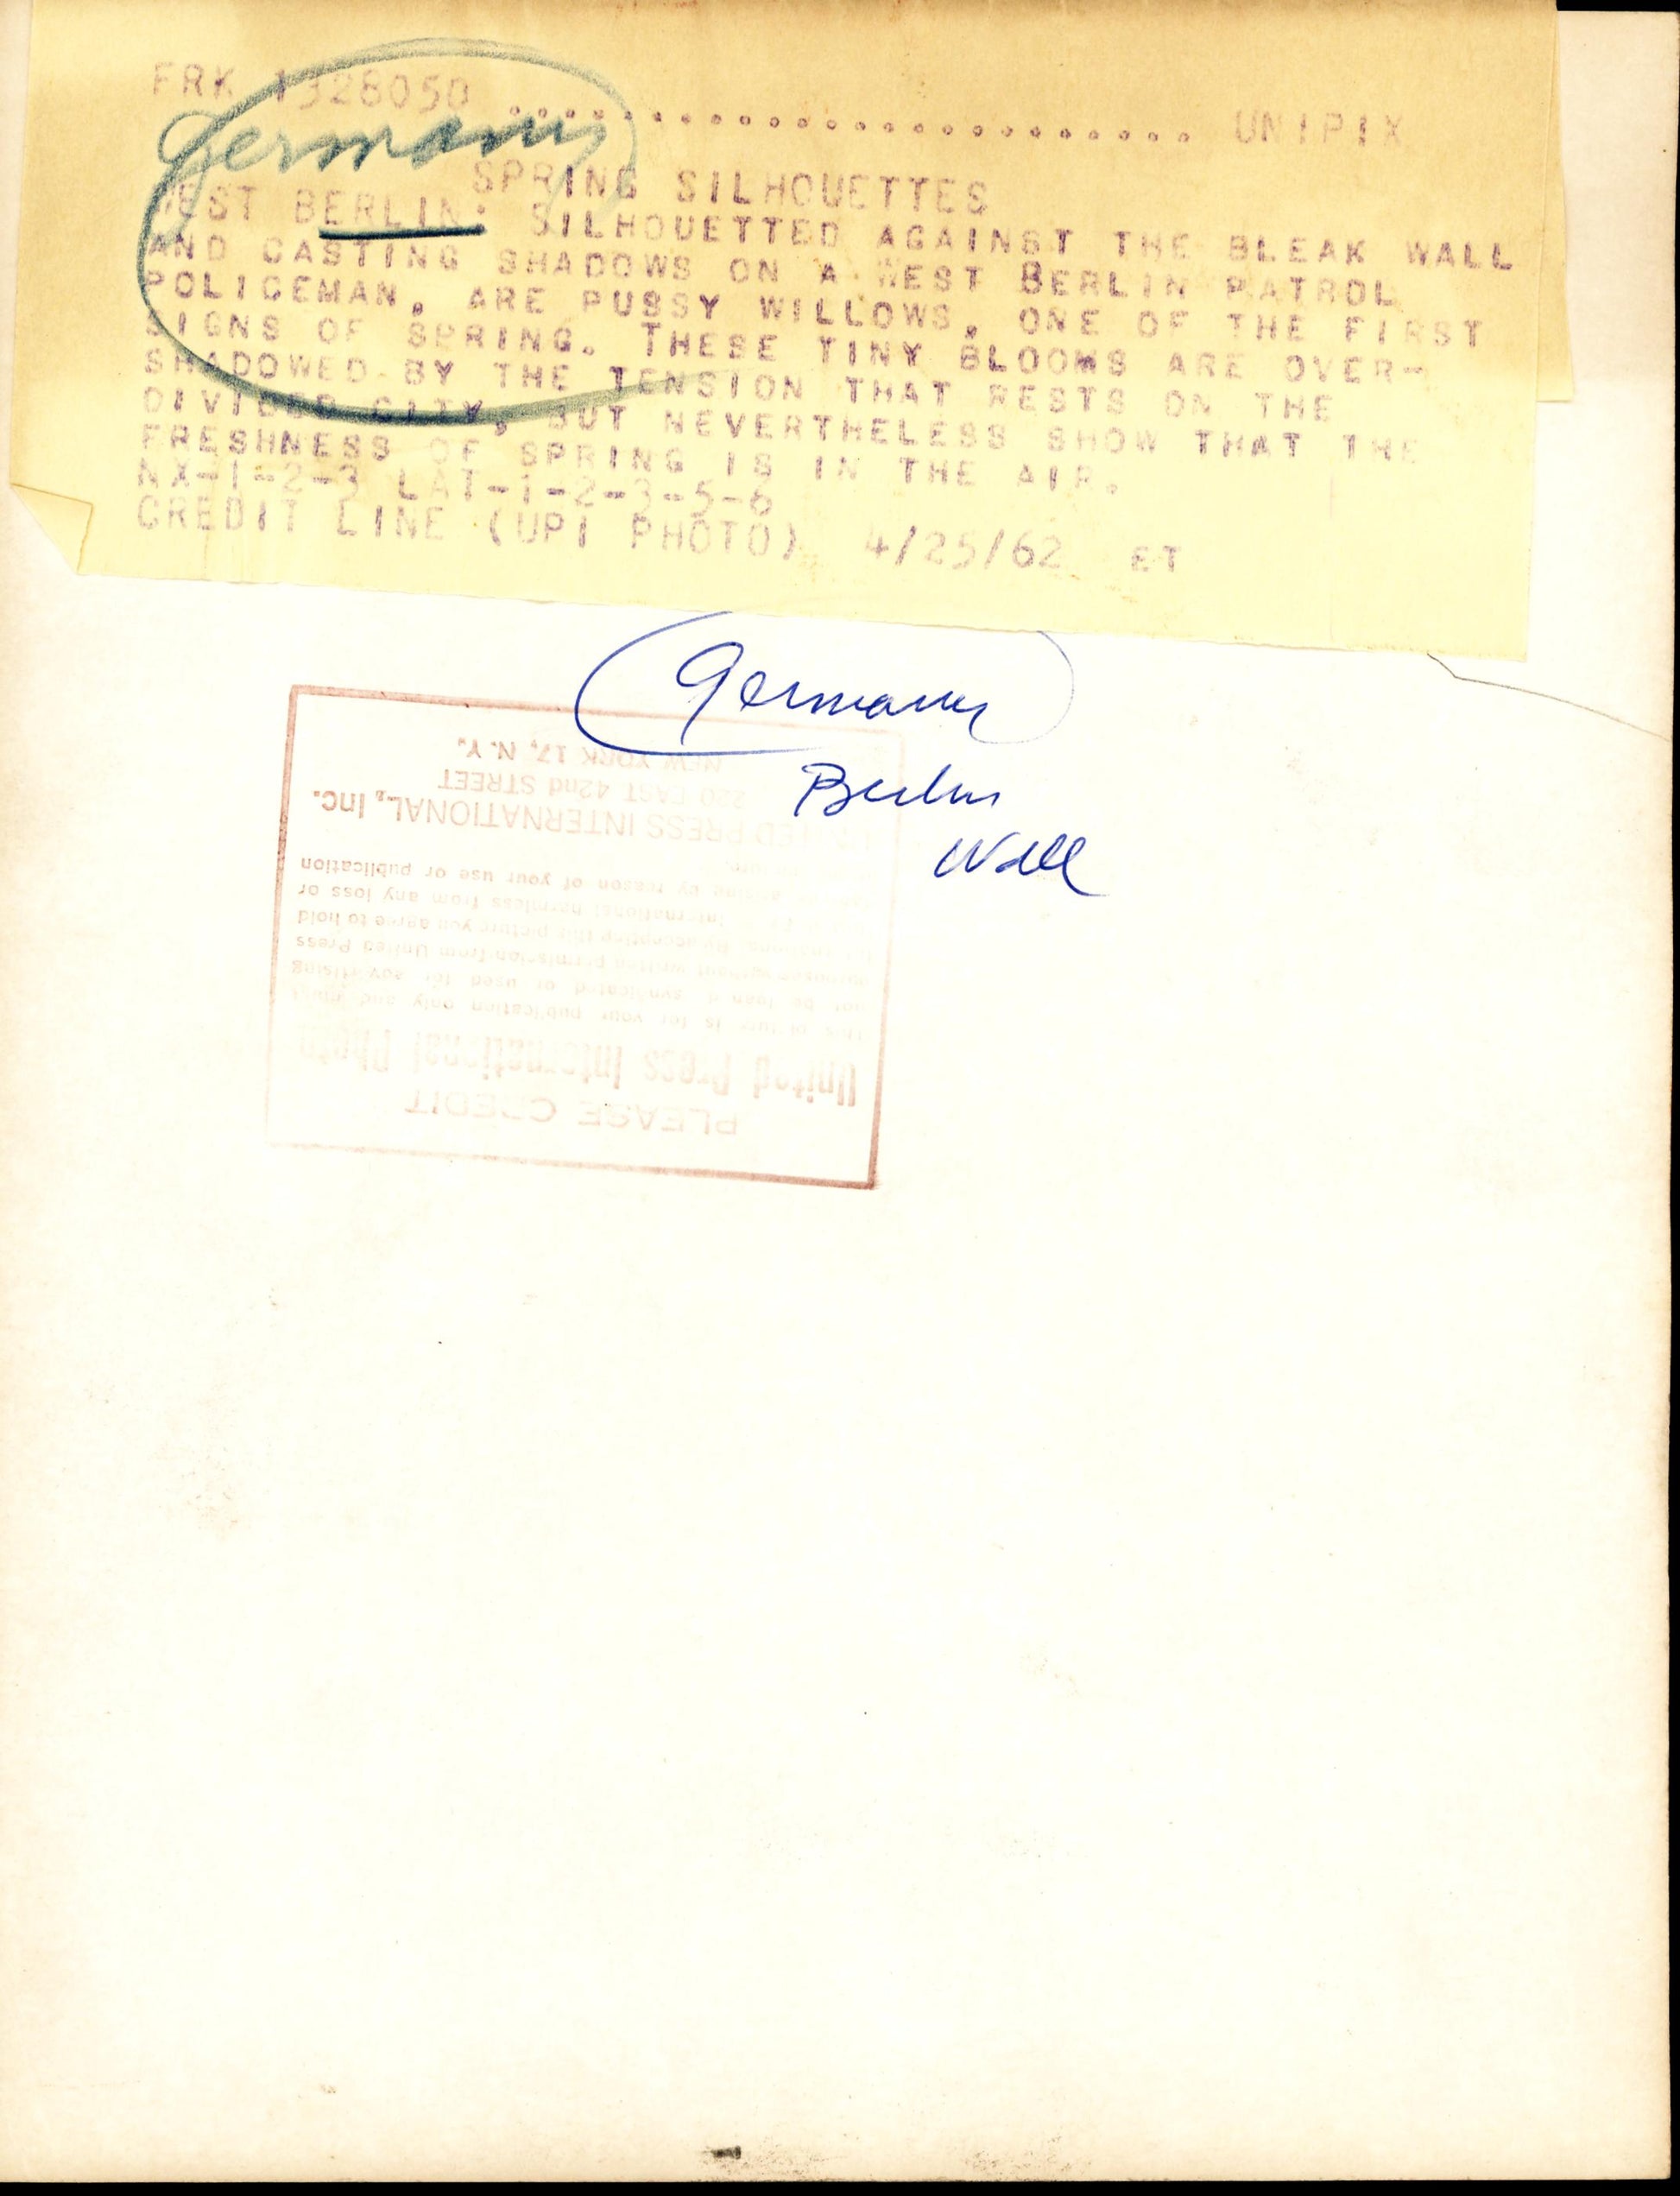 FRK 1328050 .......................... UNIPIX
Germany
SPRING SILHOUETTES
WEST BERLIN: SILHOUETTED AGAINST THE BLEAK WALL
AND CASTING SHADOWS ON A WEST BERLIN PATROL
POLICEMAN, ARE PUSSY WILLOWS, ONE OF THE FIRST
SIGNS OF SPRING. THESE TINY BLOOMS ARE OVER-
SHADOWED BY THE TENSION THAT RESTS ON THE
DIVIDED CITY, BUT NEVERTHELESS SHOW THAT THE
FRESHNESS OF SPRING IS IN THE AIR.
NX-1-2-3 LAT-1-2-3-5-6
CREDIT LINE (UPI PHOTO) 4/25/62 ET
Germany
Berlin
Wall
PLEASE CREDIT
United Press International Photo
This picture is for your publication only and must
not be loaned, syndicated or used for advertising
purposes without written permission from United Press
International. By accepting this picture you agree to hold
International harmless from any loss or
arising by reason of your use or publication
UNITED PRESS INTERNATIONAL, Inc.
220 EAST 42nd STREET
NEW YORK 17, N. Y.